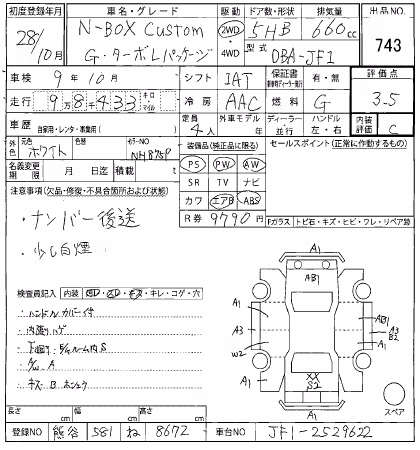 初度登録年月 車名・グレード 駆動 ドア数・形状 排気量 出品NO.
28年10月 N-BOX Custom G・ターボLパッケージ 2WD・4WD 5HB 660cc 743
型式 DBA-JF1
車検 9年10月 シフト IAT 保証書 有・無 評価点
走行 9万8千433 キロ マイル 冷房 AAC 燃料 G 3.5
車歴 自家用・レンタ・事業用( ) 定員 4人 外車モデル 年 ディーラー・並行 ハンドル 左・右 内装評価 C
外色 元色 ホワイト 色替 カラーNO NH875P 装備品(純正品に限る) セールスポイント(正常に作動するもの)
PS PW AW
名義変更期限 月 日迄 積載 t SR TV ナビ
注意事項(欠品・修復・不具合箇所および状態) カワ エアB ABS
R券 9790円 Fガラス トビ石・キズ・ヒビ・ワレ・リペア跡
・ナンバー後送
・少し白煙
A1
AB1
A1 AB1
A3 A1 A3 B2
W2
A1 XX S2
A1
スペア
検査員記入 内装 キレ・コゲ・穴
・ハンドルカバー付
・内張りハゲ
・下廻り
・A/W A
・キズ B
長さ cm 幅 cm 高さ cm
登録NO 熊谷 581 ね 8672 車台NO JF1-2529622